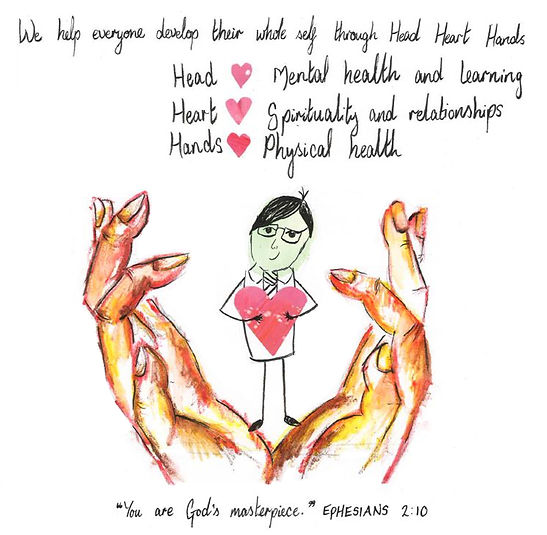 We help everyone develop their whole self through Head Heart Hands
Head ♥ Mental health and learning
Heart ♥ Spirituality and relationships
Hands ♥ Physical health
"You are God's masterpiece." EPHESIANS 2:10